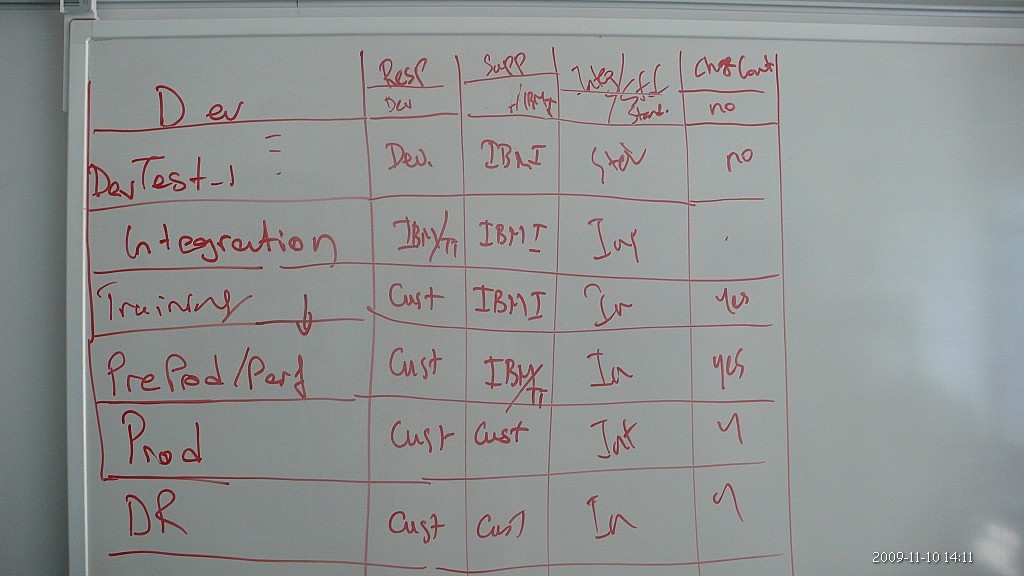 Resp Supp Integ/Stf Chge Cont
Dev Dev /IBMI Stand. no
DevTest-1 Dev. IBMI no
Integration IBM/TI IBMI Int
Training Cust IBMI In yes
PreProd/Perf Cust IBM/TI In yes
Prod Cust Cust Int y
DR Cust Cust In y
2009-11-10 14:11